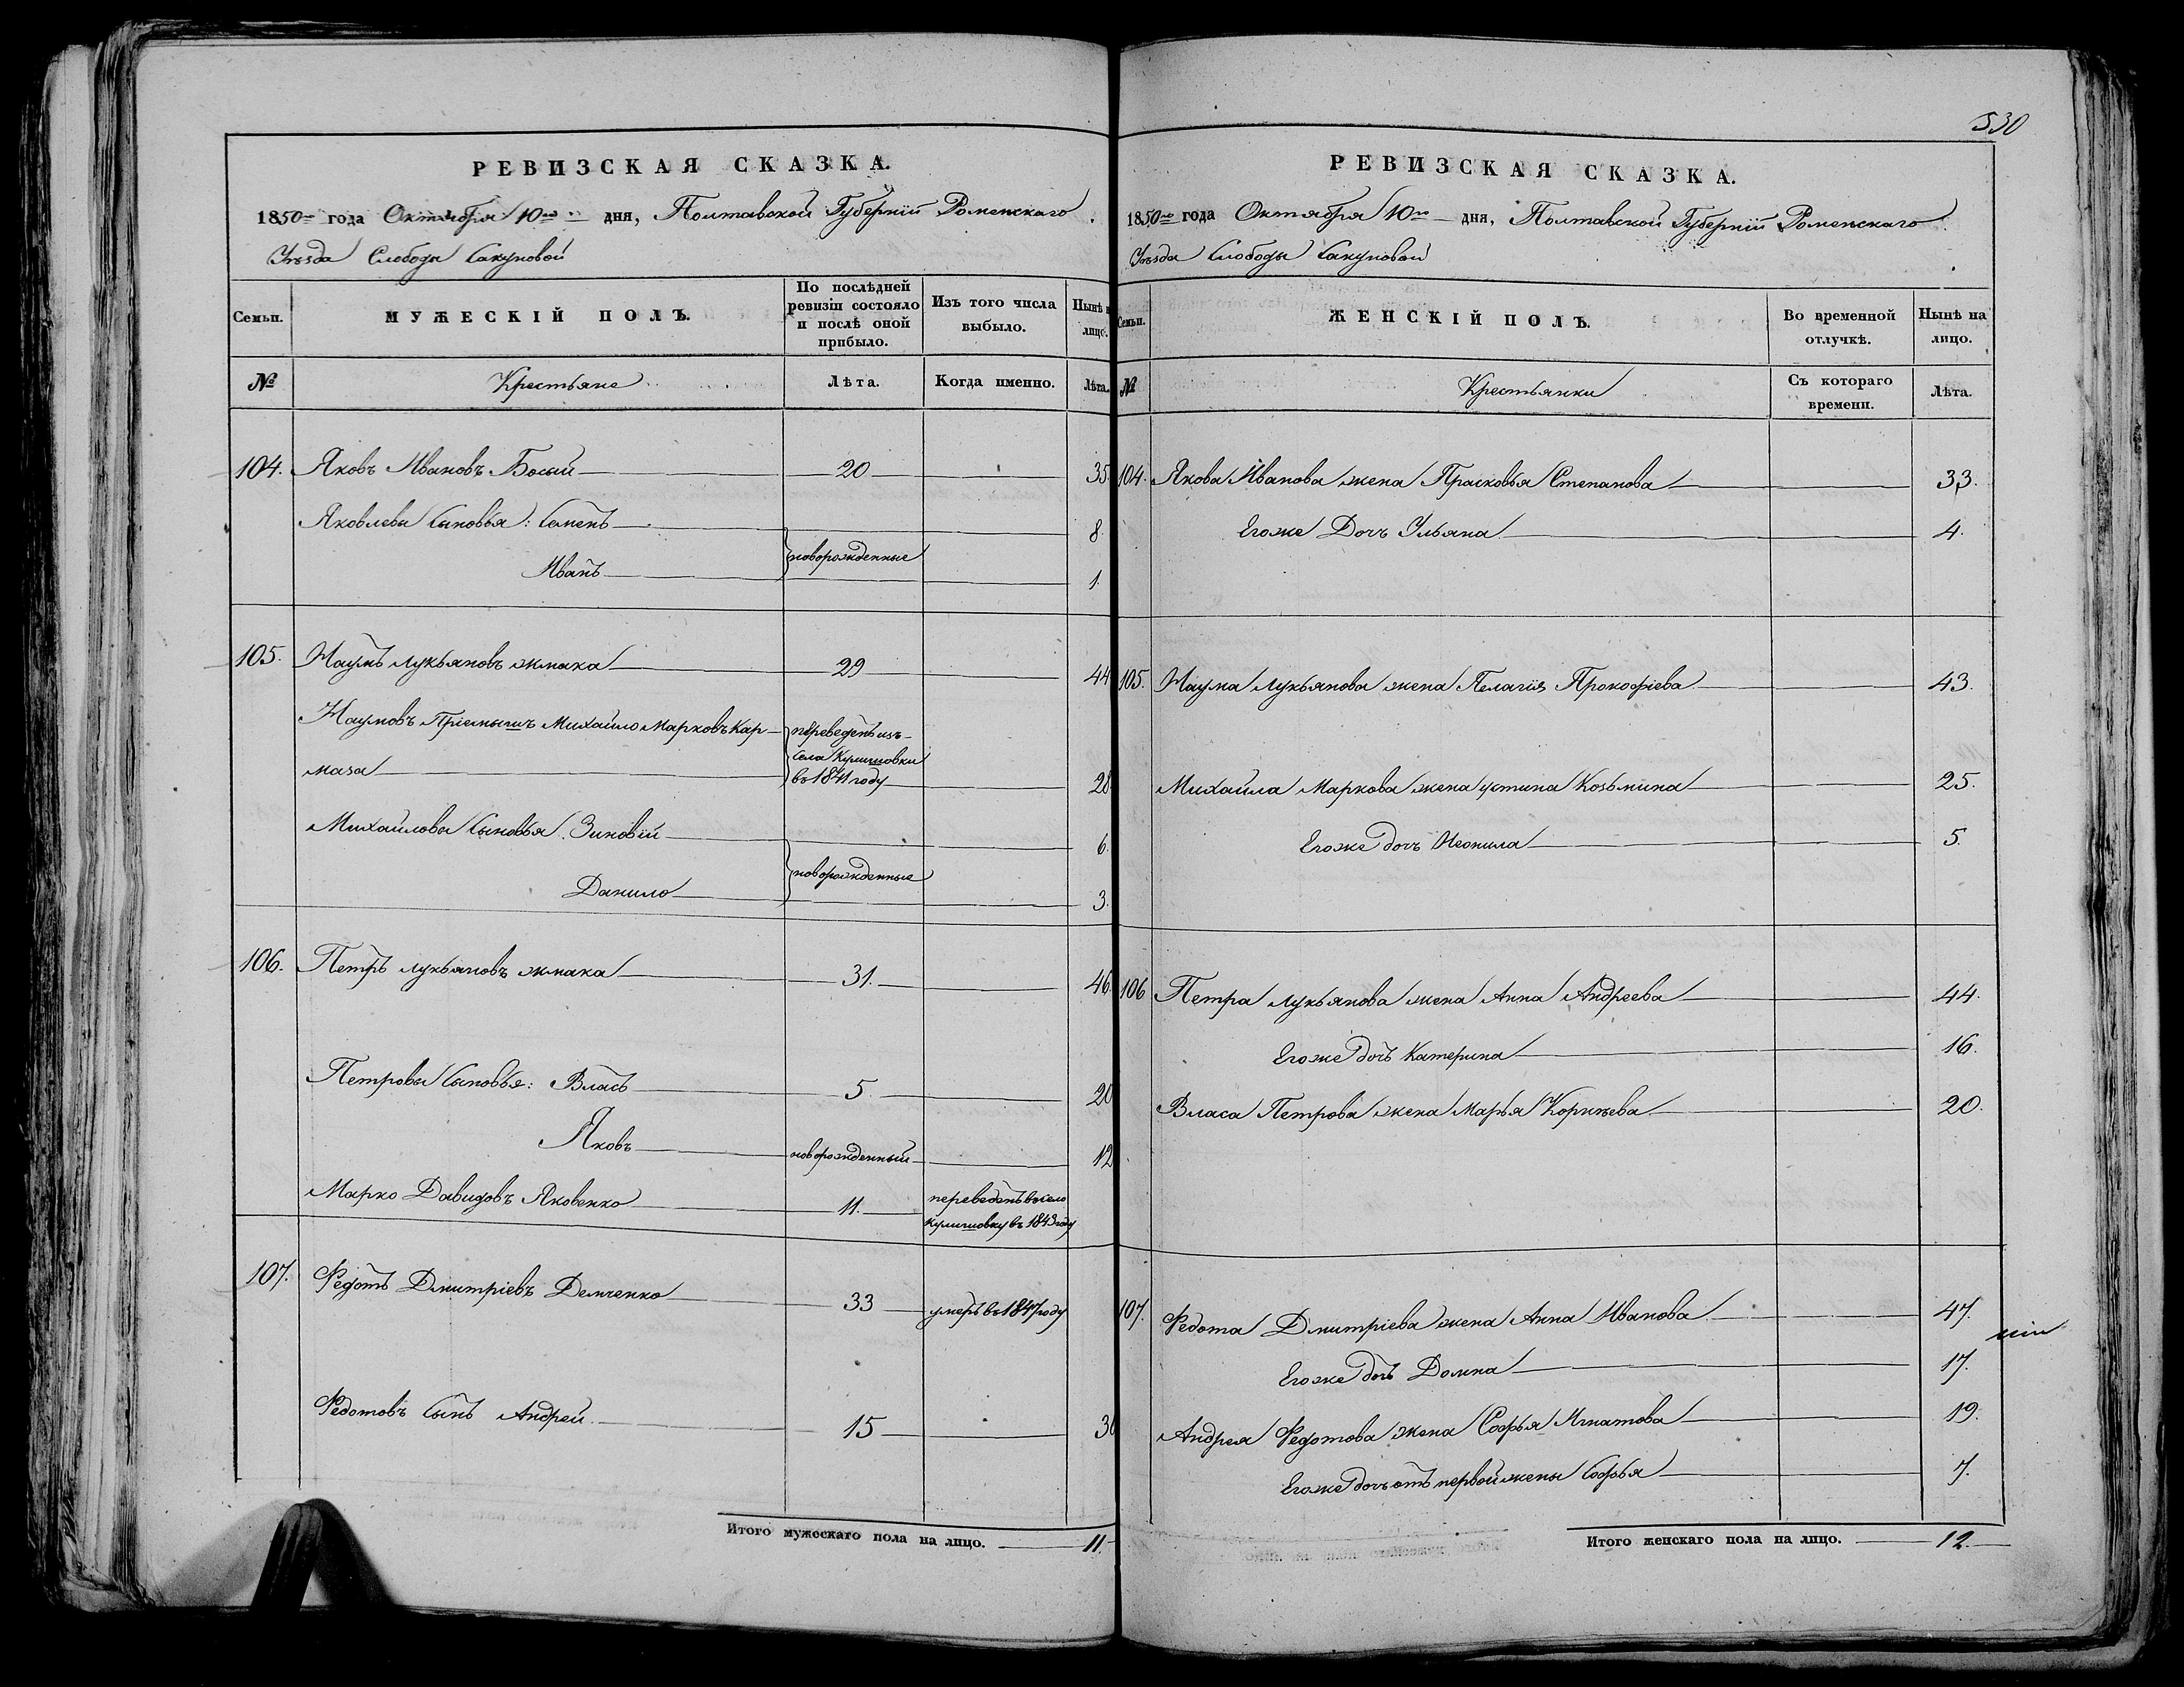 530
РЕВИЗСКАЯ СКАЗКА.
1850го года Октября 10го дня, Полтавской Губерніи Роменскаго
Уѣзда Слободы Сакуновой
Семьи. МУЖЕСКІЙ ПОЛЪ. По послѣдней ревизіи состояло и послѣ оной прибыло. Изъ того числа выбыло. Нынѣ на лицо.
№ Крестьяне Лѣта. Когда именно. Лѣта.
104. Яковъ Ивановъ Босый 20 35.
Яковлевы Сыновья: Семенъ 8.
новорожденные
Иванъ 1.
105. Наумъ Лукьяновъ жмака 29 44
Наумовъ Пріемышъ Михайло Марковъ Кар-
маза 28
переведенъ изъ
села Кулишовки
въ 1841 году
Михайловы Сыновья. Зиновій 6.
новорожденные
Данило 3.
106. Петръ Лукьяновъ жмака 31. 46.
Петровы Сыновья: Власъ 5. 20
Яковъ новорожденный 12
Марко Давидовъ Яковенко 11. переведенъ въ село
кулишовку въ 1843 году
107. Федотъ Дмитріевъ Демченко 33 умеръ въ 1847 году
Федотовъ Сынъ Андрей 15 30
Итого мужескаго пола на лицо. 11.
РЕВИЗСКАЯ СКАЗКА.
1850го года Октября 10го дня, Полтавской Губерніи Роменскаго
Уѣзда Слободы Сакуновой
Семьи. ЖЕНСКІЙ ПОЛЪ. Во временной отлучкѣ. Нынѣ на лицо.
№ Крестьянки Съ котораго времени. Лѣта.
104. Якова Иванова жена Прасковья Степанова 33.
Егоже Дочъ Ульяна 4.
105. Наума Лукьянова жена Пелагія Прокофіева 43.
Михайла Маркова жена устина Козьмина 25.
Егоже дочъ Неонила 5.
106 Петра Лукьянова жена Анна Андреева 44.
Егоже дочъ Катерина 16.
Власа Петрова жена Марья Корнѣева 20.
107. Федота Дмитріева жена Анна Иванова 47.
Егоже дочъ Домна 17.
Андрея Федотова жена Софья Игнатова 19.
Егоже дочъ отъ первой жены Софья 7.
Итого женскаго пола на лицо. 12.